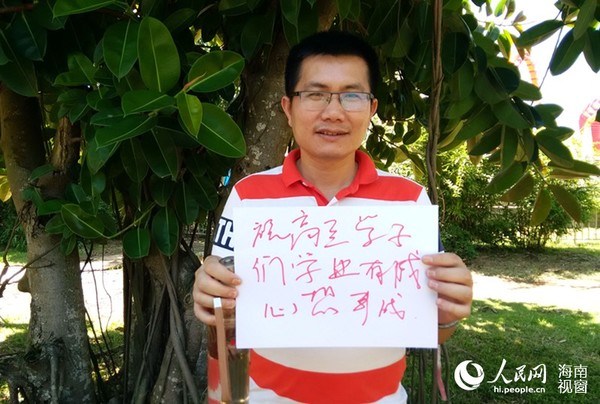 祝高三学子
们学业有成
心想事成
TH
人民网
hi.people.cn
海南
视窗